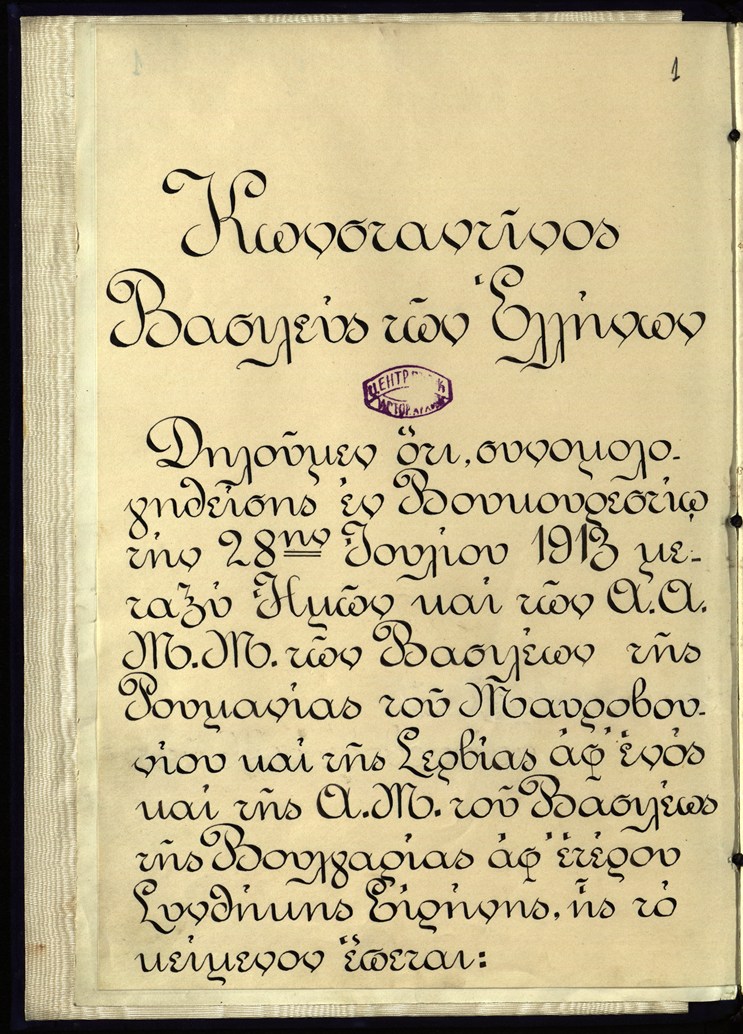 1
Κωνσταντῖνος
Βασιλεύς τῶν Ἑλλήνων
Δηλοῦμεν ὅτι, συνομολο-
γηθείσης ἐν Βουκουρεστίῳ
τήν 28ην Ἰουλίου 1913 με-
ταξύ Ἡμῶν καί τῶν Α.Α.
Μ.Μ. τῶν Βασιλέων τῆς
Ρουμανίας τοῦ Μαυροβου-
νίου καί τῆς Σερβίας ἀφ' ἑνός
καί τῆς Α.Μ. τοῦ Βασιλέως
τῆς Βουλγαρίας ἀφ' ἑτέρου
Συνθήκης Εἰρήνης, ἧς τό
κείμενον ἕπεται: